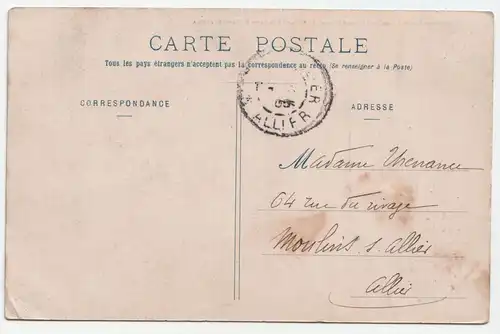 CARTE POSTALE
Tous les pays étrangers n'acceptent pas la correspondance au recto (Se renseigner à la Poste)
CORRESPONDANCE
ADRESSE
ALLIER
Madame
64 rue du rivage
Moulins s. Allier
Allier